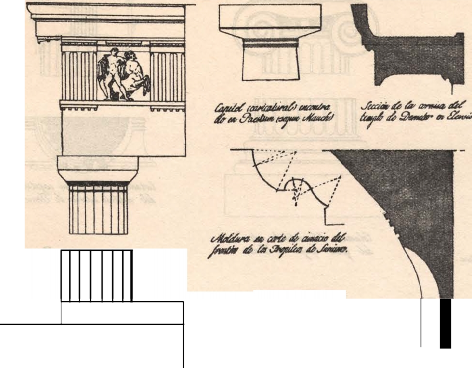 Capitel (caricatural) encontra
do en Paestum (segun Mauch)
Sección de la cornisa del
templo de Demeter en Eleusis
Moldura en corte de cimacio del
frontón de los Propileos de Sunium.